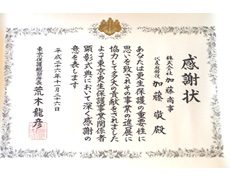 感謝状
株式会社 加藤商事
代表取締役 加藤敬殿
あなたは更生保護の重要性に
思いを致されその事業の進展に
協力して多大の貢献をされました
よって東京更生保護事業関係者
顕彰式典において深く感謝の
意を表します
平成二十六年十一月二十六日
東京保護観察所長 荒木龍彦